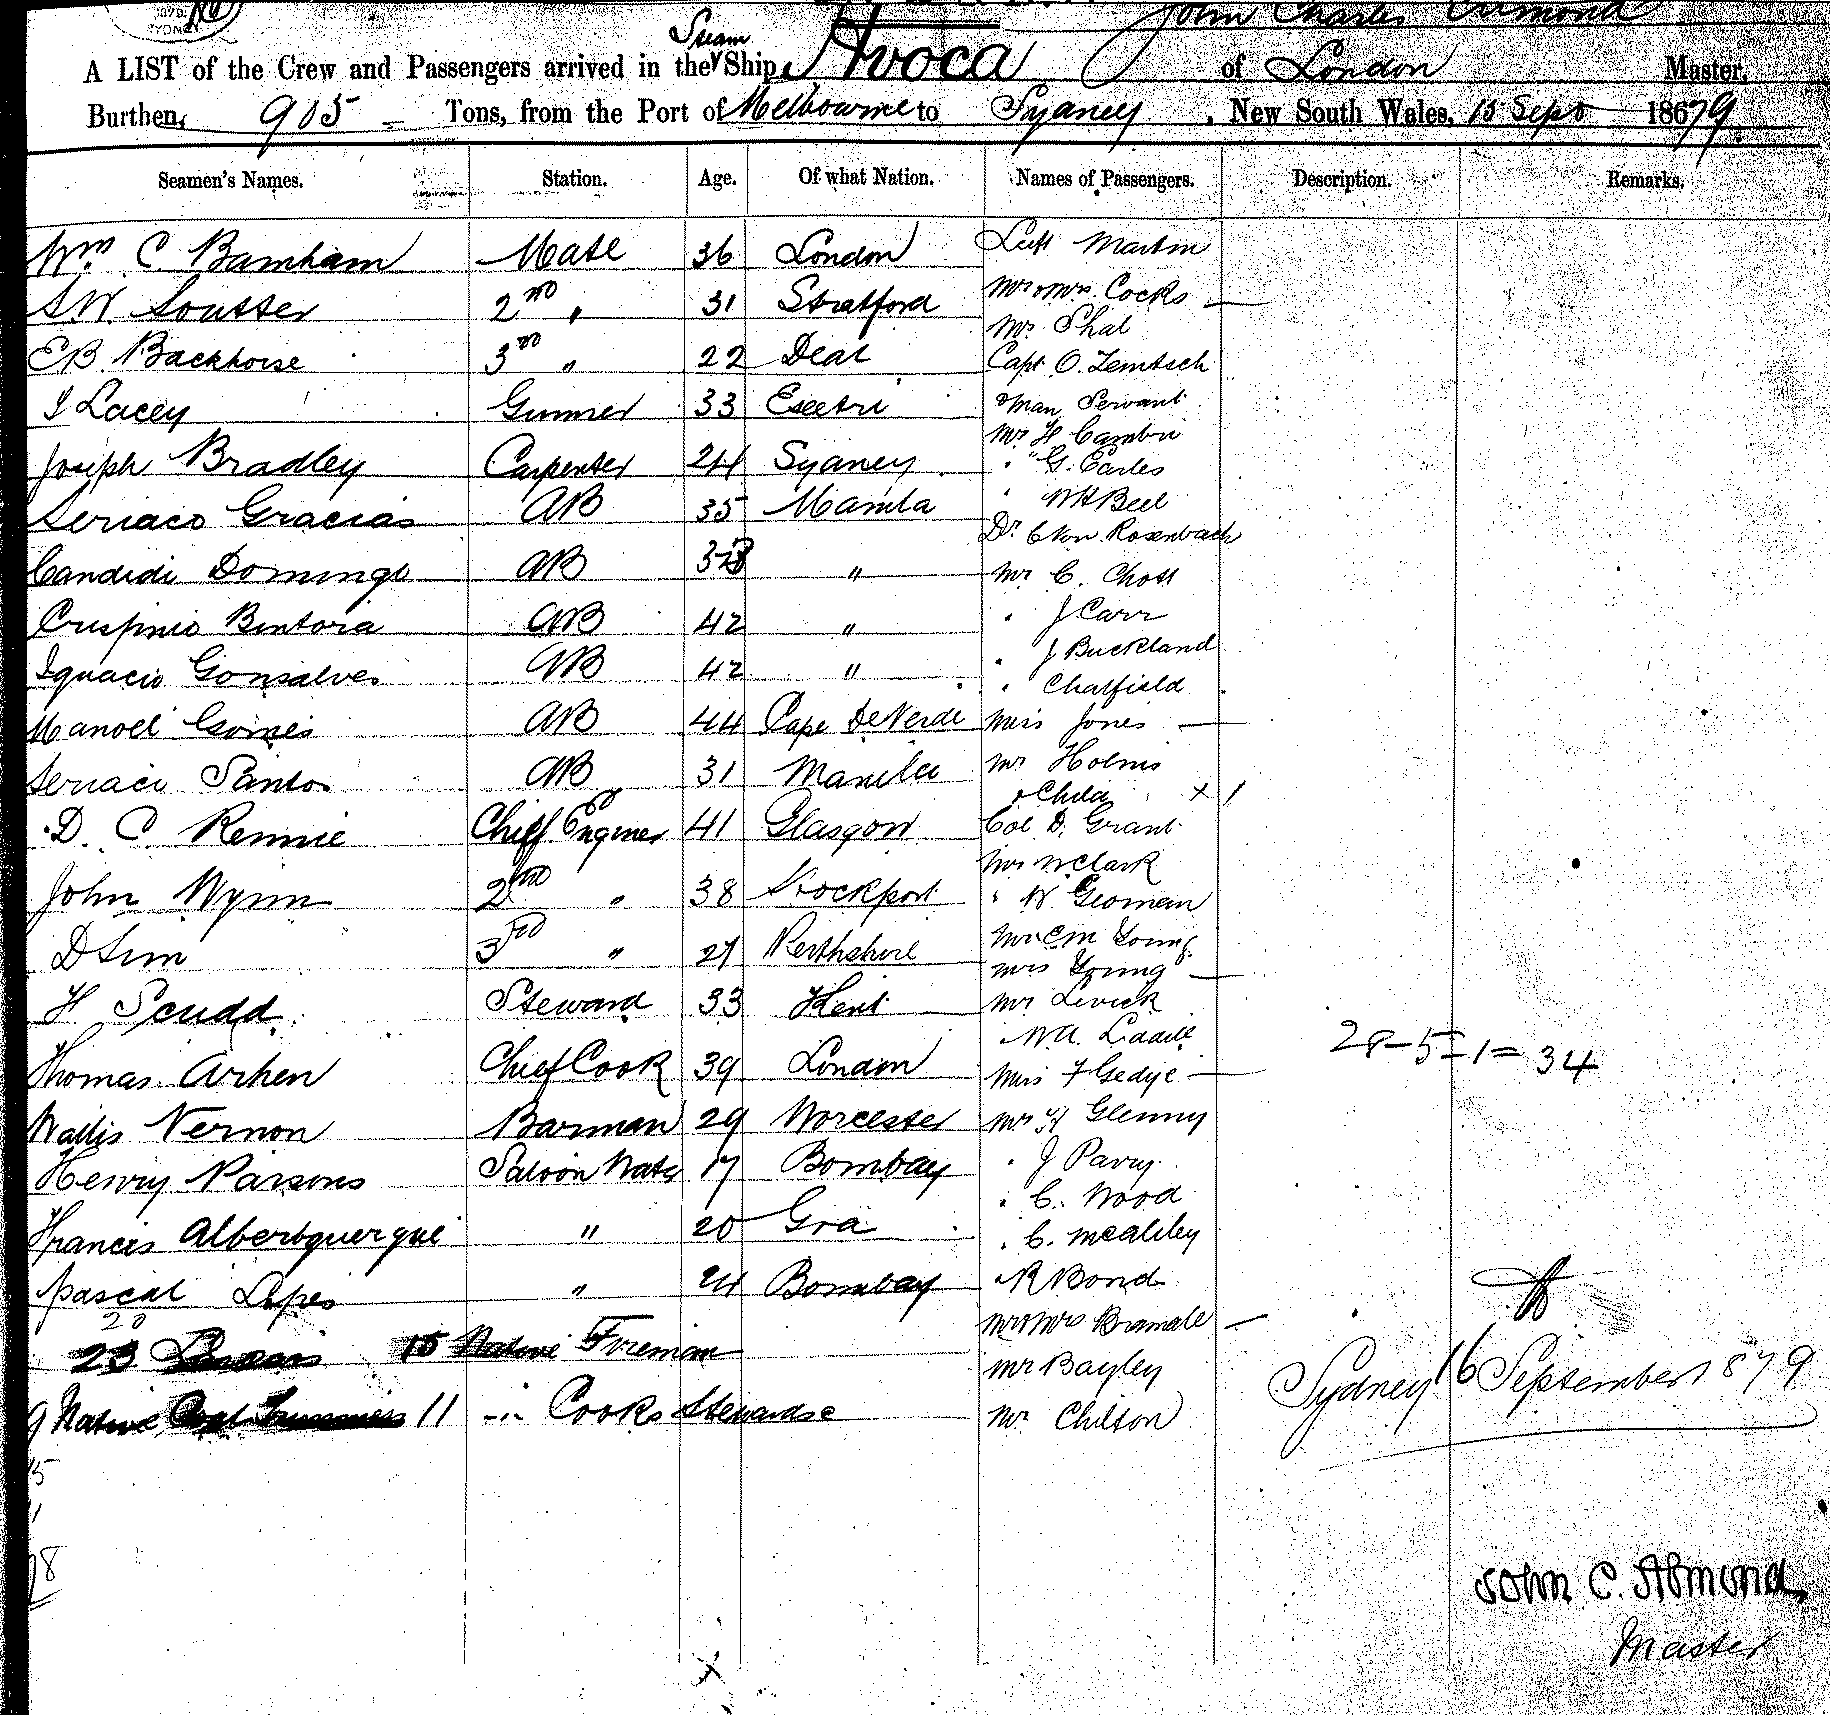 John Charles Almond
A LIST of the Crew and Passengers arrived in the Steam Ship Avoca of London Master,
Burthen, 905 Tons, from the Port of Melbourne to Sydney, New South Wales, 15 Sept 1879
Seamen's Names. Station. Age. Of what Nation. Names of Passengers. Description. Remarks.
Wm. C Barnham Mate 36 London
Martin
S.W. Soutter 2nd " 31 Stratford
Mr & Mrs Cocks —
Mr. Shal
E B. Backhouse 3rd " 22 Deal
Capt O. Zemtsch
I Lacey Gunner 33
& Man Servant
Mr H Cambri
Joseph Bradley Carpenter 24 Sydney
" G. Earles
Seriaco Gracias AB 35 Manila
" W H Bell
Dr. C Von Rosenbach
Candidi Domingo AB "
Mr C. Chott
Crispinio Bentora AB 42 "
" J Carr
" J Buckland
Ignacio Gonsalves AB 42 "
" Chatfield
Manoel Gomes AB 44 Cape De Verde
Miss Jones —
Seriaci Santos AB 31 Manilla
Mr Holmes
& Child × 1
D. C Rennie Chief Engineer 41 Glasgow
Col D. Grant
Clark
John Wynn 2nd " 38 Stockport
" W
D Sim 3rd " Perthshire
Young
Mrs Young —
H Scudd Steward 33 Kent
Mr Levick
28-5-1=34
Thomas Arken Chief Cook 39 London
Miss F Gedye —
Wallis Vernon Barman 29 Worcester
Mr H Glenny
Henry Parsons Saloon Water 17 Bombay
" J Parry
" C. Wood
Francis Alberbquerque " 20 Goa
" C.
Pascal Lopes " 24 Bombay
" R Bond
20
23 Lascars 15 Native Firemen
Mr & Mrs —
Mr Bayley
Sydney 16 September 1879
9 Native Coal Trimmers 11 -"- Cooks Stewards &c
Mr Chilton
15
11
78
John C. Almond,
Master